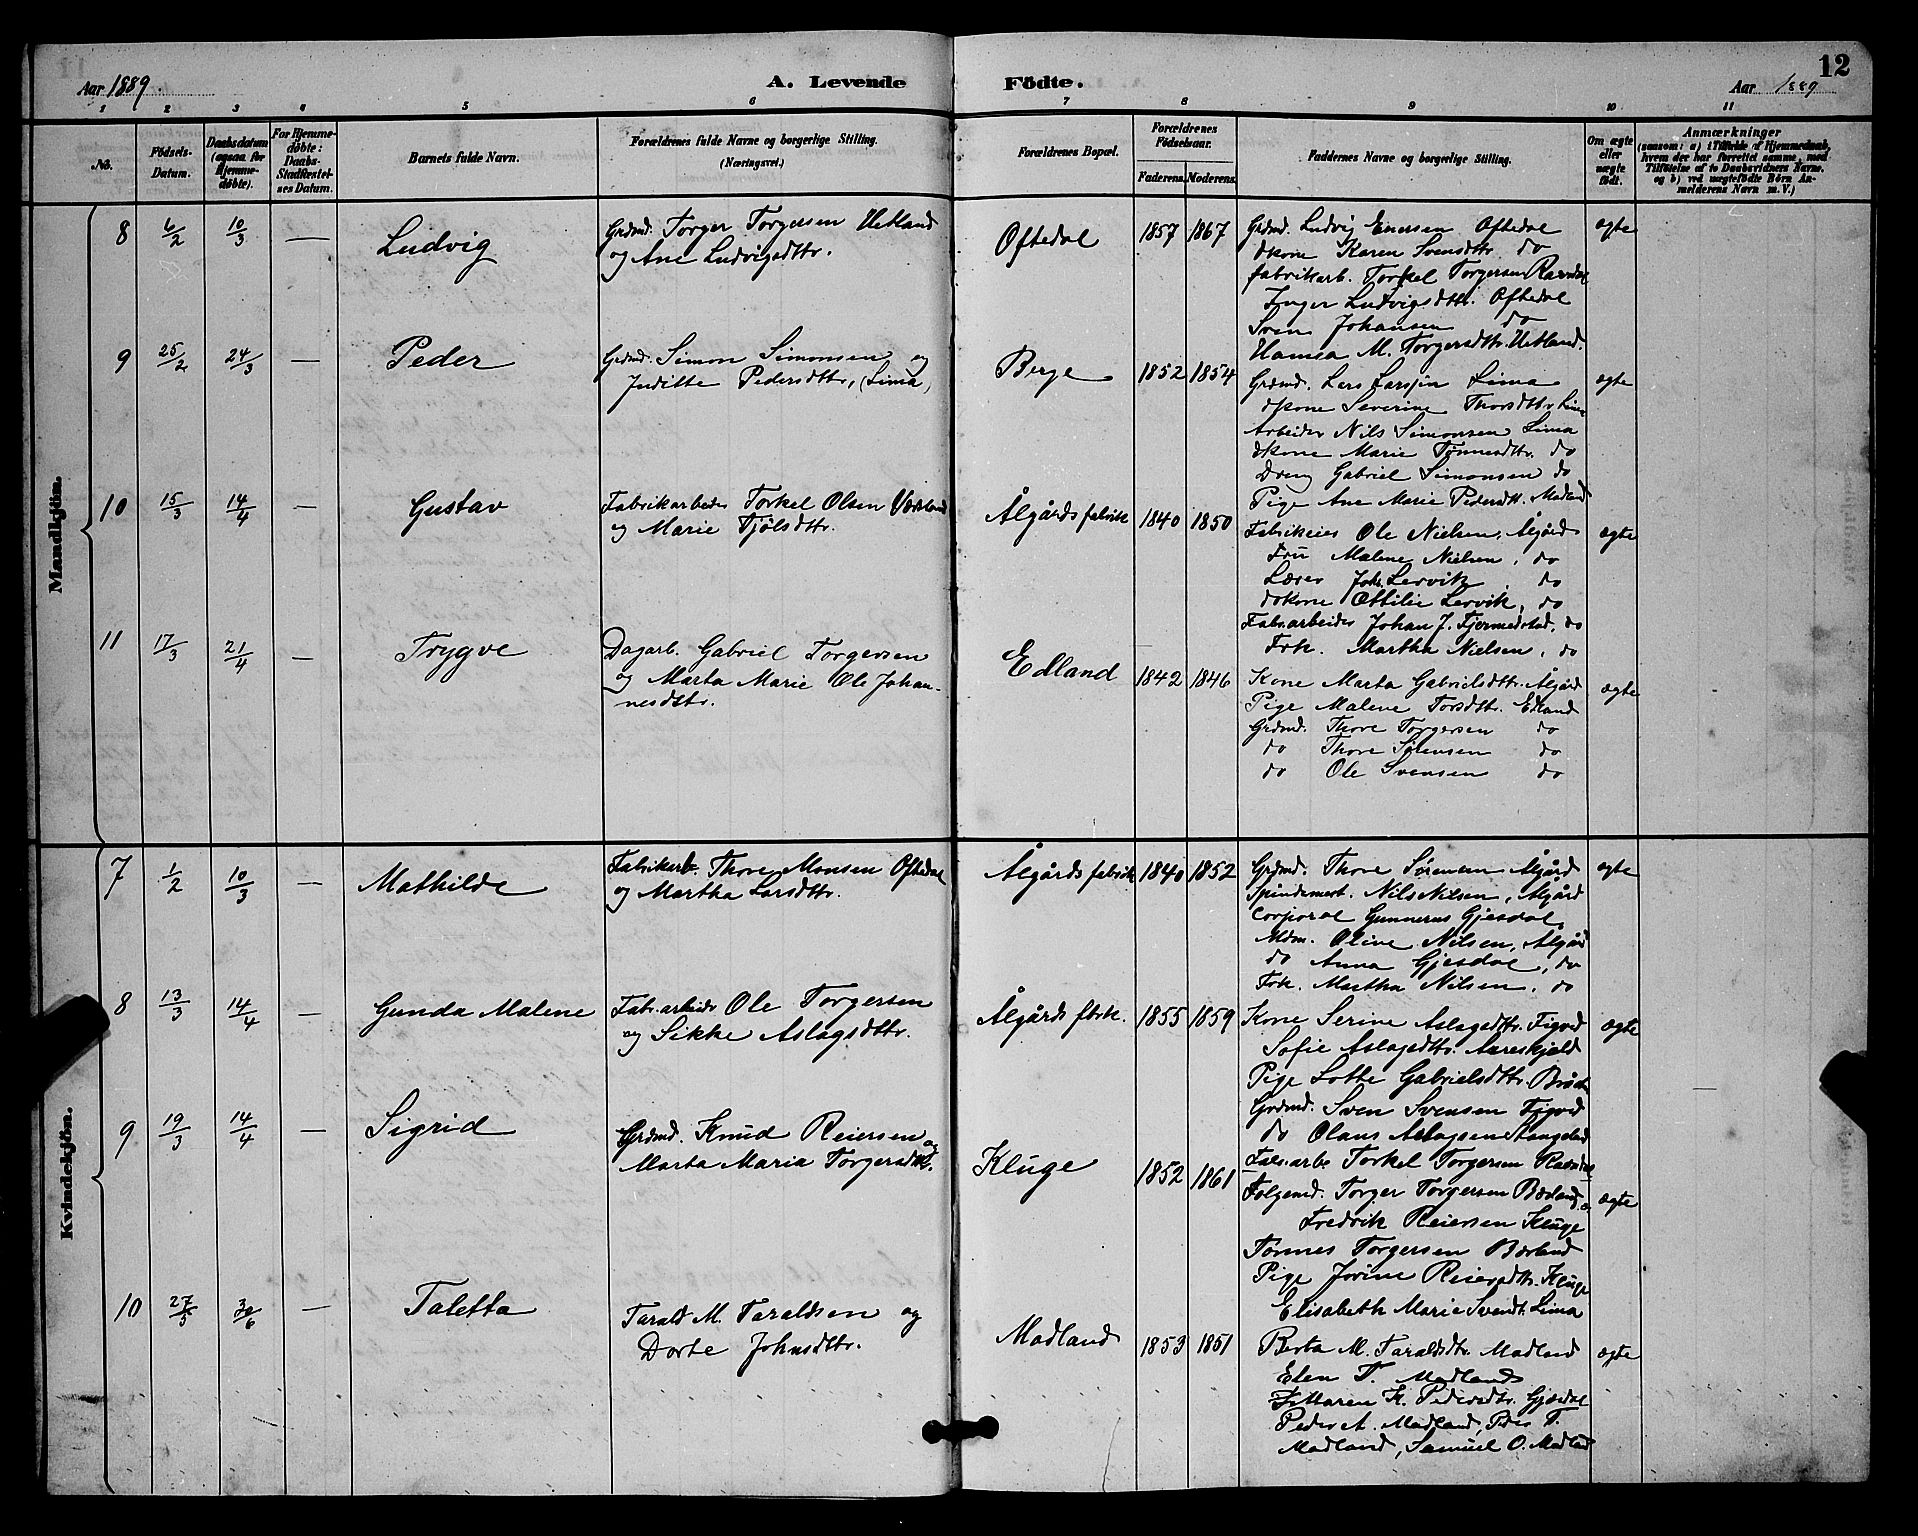 12
Aar 1889.
A. Levende Födte.
Aar 1889
1 2 3 4 5 6 7 8 9 10 11
No.
Födsels-Datum.
Daabsdatum (ogsaa for Hjemmedöbte).
For Hjemmedöbte: Daabs-Stadfæstelses Datum.
Barnets fulde Navn.
Forældrenes fulde Navne og borgerlige Stilling. (Næringsvei.)
Forældrenes Bopæl.
Forældrenes Födselsaar.
Faderens. Moderens.
Faddernes Navne og borgerlige Stilling.
Om ægte eller uægte födt.
Anmærkninger
(saasom: a) i Tilfælde af Hjemmedaab, hvem der har forrettet samme, med Tilföielse af to Daabsvidners Navne, og b) ved uægtefödte Börn Anmelderens Navn m. V.)
Mandkjön.
8 6/2 10/3 — Ludvig
Grdmd. Torger Torgersen Uetland
og Ane Ludvigsdttr.
Oftedal 1857 1867
Grdmd. Ludvig Enersen Oftedal
dkone Karen Svensdttr. do
fabrikarb. Torkel Torgersen
Inger Ludvigsdttr. Oftedal
Sven Johansen do
M. Torgersdttr. Uetland.
ægte
9 25/2 24/3 — Peder
Grdmd. Simon Simonsen og
Juditte Pedersdttr, (Lima)
Berge 1852 1854
Grdmd. Lars Larsen Lima
dkone Severine Thorsdttr Lima
Arbeider Nils Simonsen Lima
dkone Marie Tønnesdttr. do
Dreng Gabriel Simonsen do
Pige Ane Marie Pedersdtt. Madland
ægte
10 15/3 14/4 — Gustav
Fabrikarbeider Torkel Olsen
og Marie Tjølsdttr.
Ålgårds fabrik 1840 1850
Fabrikeier Ole Nielsen, Ålgård
Fru Malene Nielsen, do
Lærer Johs. Lervik, do
dskone Ottilie Lervik, do
Fabr.arbeider Johan J. Fjermedstad, do
Frk. Martha Nielsen, do
ægte
11 17/3 21/4 — Trygve
Dagarb. Gabriel Torgersen
og Marta Marie Ole Johan-
nesdttr.
Edland 1842 1846
Kone Marta Gabrielsdttr. Ålgård
Pige Malene Torsdttr. Edland
Grdmd. Thore Torgersen do
do Thore Sørensen do
do Ole Svensen do
ægte
Kvindekjön.
7 1/2 10/3 — Mathilde
Fabrikarb. Thore Monsen Oftedal
og Martha Larsdttr.
Ålgårds fabrik 1840 1852
Grdmd. Thore Sørensen Ålgård
Spindemest. Nils Nilsen, Ålgård
Corporal Gunnerus Gjesdal,
Mdm. Olive Nilsen, Ålgård
do Anna Gjesdal, do
Frk. Martha Nilsen, do
ægte
8 13/3 14/4 — Gunda Malene
Fabr.arbeider Ole Torgersen
og Sikke Aslagsdttr.
Ålgårds fbrk. 1855 1859
Kone Serine Aslagsdttr. Figved
Sofie Aslagsdttr. Aareskjold
Pige Lotte Gabrielsdttr.
Grdmd. Sven Svensen Figved
do Olaus Aslagsen
Fabr.arb. Torkel Torgersen
ægte
9 19/3 14/4 — Sigrid
Grdmd. Knud Reiersen og
Marta Maria Torgersdtr.
Kluge 1852 1861
Følgemd. Torger Torgersen Bærland
Fredrik Reiersen Kluge
Tønnes Torgersen Bærland
Pige Jorine Reiersdtr. Kluge
Elisabeth Marie Svendt. Lima
ægte
10 27/5 30/6 — Taletta
Tarald M. Taraldsen og
Dorte Johnsdttr.
Madland 1853 1851
Berta M. Taraldsdtr. Madland
Elen T. Madland
Maren K. Pedersdtr. Gjesdal
Peder A. Madland, Peder T.
Madland, Samuel O. Madland
ægte